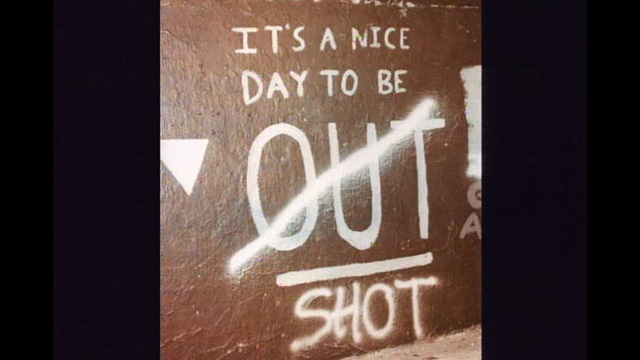 IT'S A NICE
DAY TO BE
OUT
SHOT